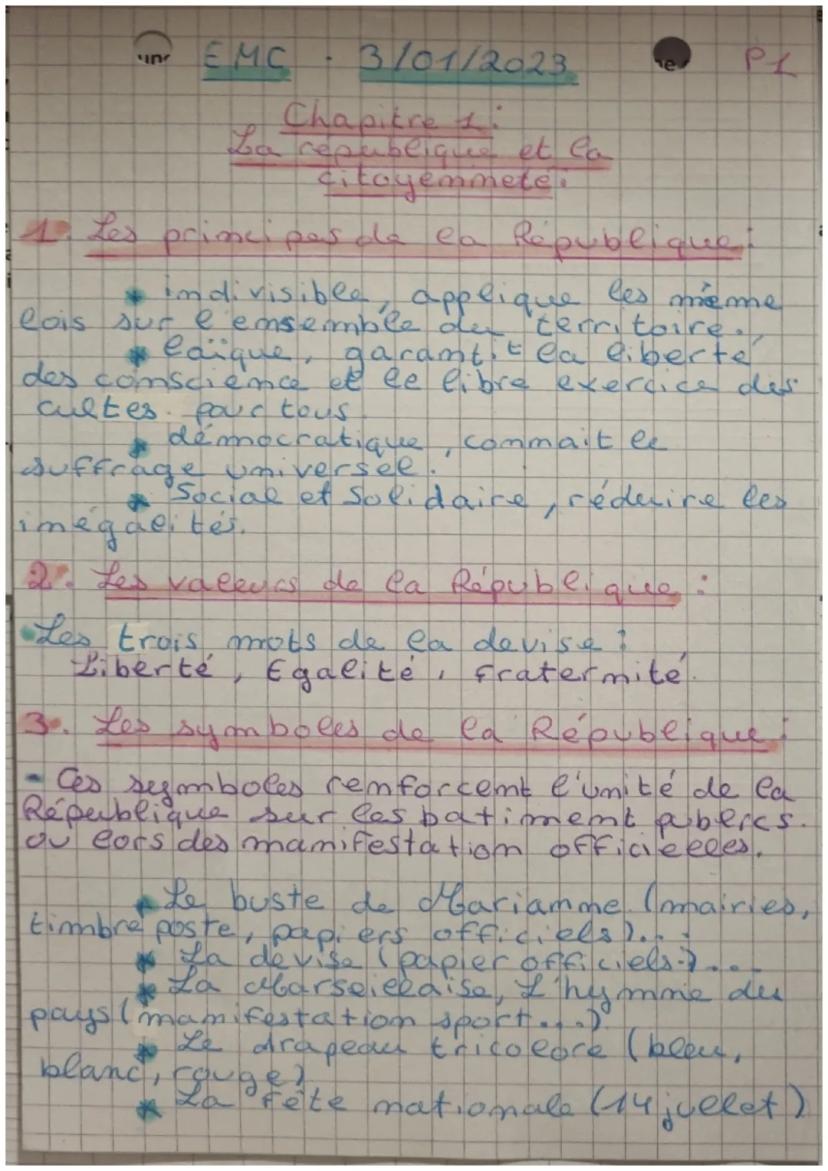 EMC . 3/01/2023 P1
Chapitre 1:
La république et la
citoyemmeté.
1. Les principes de la République:
* indivisible, applique les même
lois sur l'ensemble du territoire.
* laïque, garantit la liberté
des conscience et le libre exercice des
cultes pour tous
* démocratique, connait le
suffrage universel.
* Social et Solidaire, réduire les
inégalités.
2. Les valeurs de la République:
Les trois mots de la devise:
Liberté, Egalité, Fraternité.
3. Les symboles de la République:
- Ces symboles renforcent l'unité de la
République sur les batiment publics
ou lors des manifestation officielles.
* Le buste de Marianne (mairies,
timbre poste, papiers officiels)...
* La devise (papier officiels)...
* La Marseillaise, L'hymne du
pays (manifestation sport...)
* Le drapeau tricolore (bleu,
blanc, rouge)
* La Fête nationale (14 juillet)